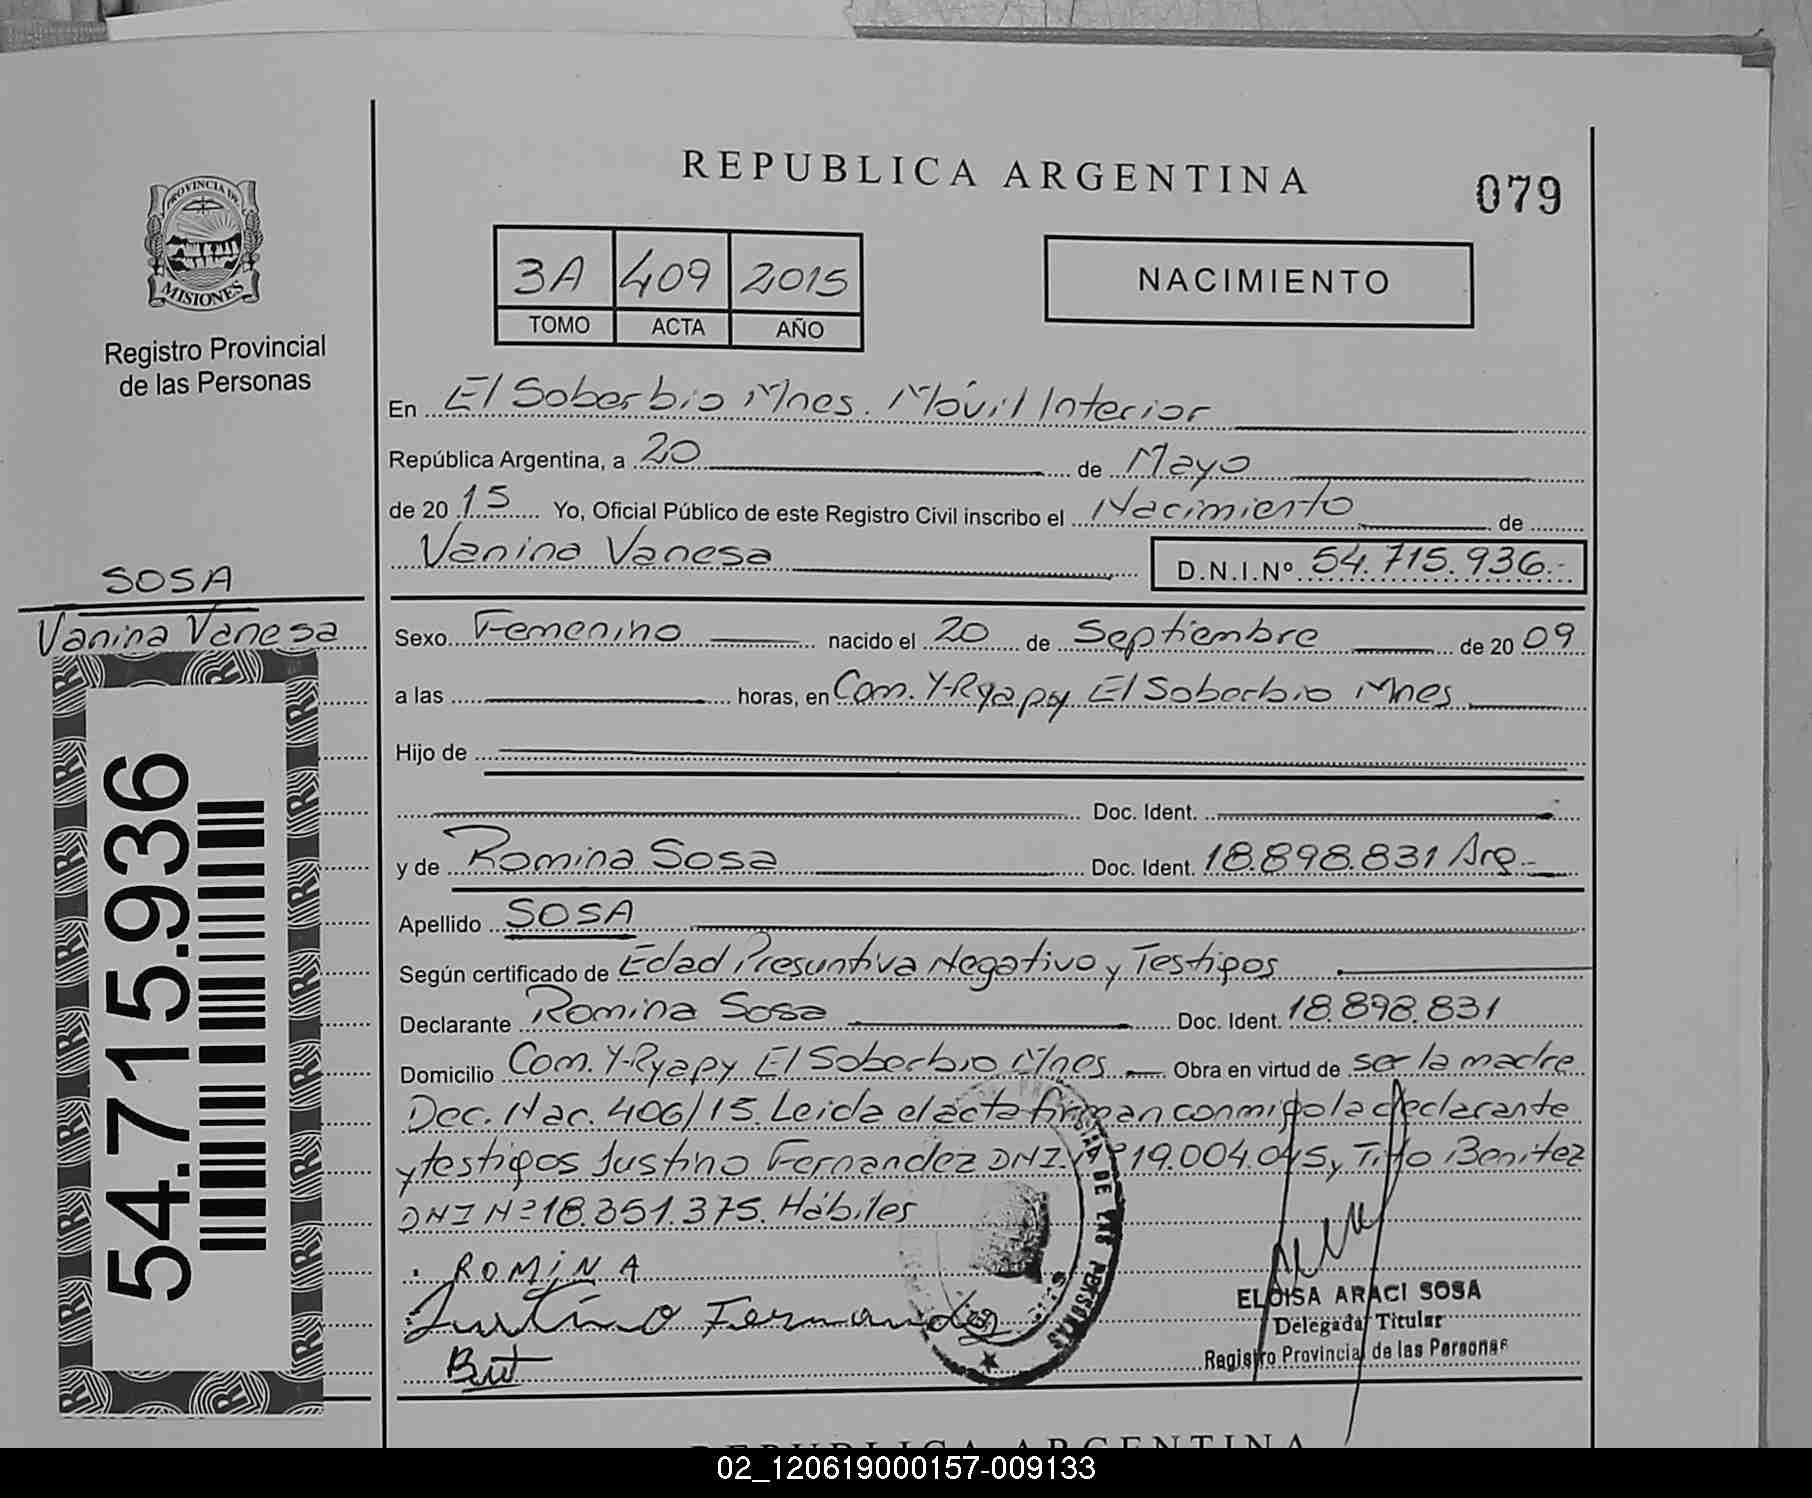 PROVINCIA DE
MISIONES
Registro Provincial
de las Personas
SOSA
Vanina Vanesa
54.715.936
REPUBLICA ARGENTINA
079
3A 409 2015
TOMO ACTA AÑO
NACIMIENTO
En El Soberbio Mnes. Móvil Interior
República Argentina, a 20 de Mayo
de 20 15 Yo, Oficial Público de este Registro Civil inscribo el Nacimiento de
Vanina Vanesa D.N.I.Nº 54.715.936.-
Sexo Femenino nacido el 20 de Septiembre de 20 09
a las horas, en Com. Y-Ryapy El Soberbio Mnes
Hijo de
Doc. Ident.
y de Romina Sosa Doc. Ident. 18.898.831 Arg.-
Apellido SOSA
Según certificado de Edad Presuntiva Negativo y Testigos
Declarante Romina Sosa Doc. Ident. 18.898.831
Domicilio Com. Y-Ryapy El Soberbio Mnes Obra en virtud de ser la madre
Dec. Nac. 406/15. Leida el acta firman conmigo la declarante
y testigos Justino Fernandez DNI.Nº 19.004.045 y Tito Benitez
DNI Nº 18.351.375. Hábiles
ROMINA
Justino Fernandez
DE LAS PERSONAS
ELOISA ARACI SOSA
Delegada Titular
Registro Provincial de las Personas
REPUBLICA ARGENTINA
02_120619000157-009133